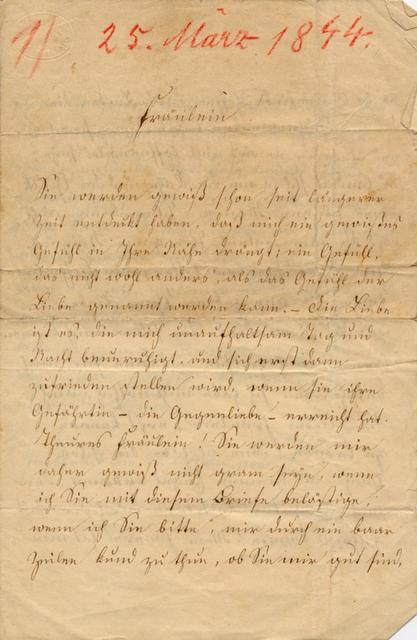 1/ 25. März 1844.
Fräulein.
Sie werden gewiß schon seit längerer
Zeit entdeckt haben, daß mich ein gewißes
Gefühl in Ihre Nähe drängt; ein Gefühl,
das nicht wohl anders, als das Gefühl der
Liebe genannt werden kann. – Die Liebe
ist es, die mich unaufhaltsam Tag und
Nacht beunruhigt, und sich erst dann
zufrieden stellen wird, wenn sie ihre
Gefährtin – die Gegenliebe – erreicht hat.
Theures Fräulein! Sie werden mir
daher gewiß nicht gram seyn, wenn
ich Sie mit diesem Briefe belästige,
wenn ich Sie bitte, mir durch ein paar
Zeilen kund zu thun, ob Sie mir gut sind,